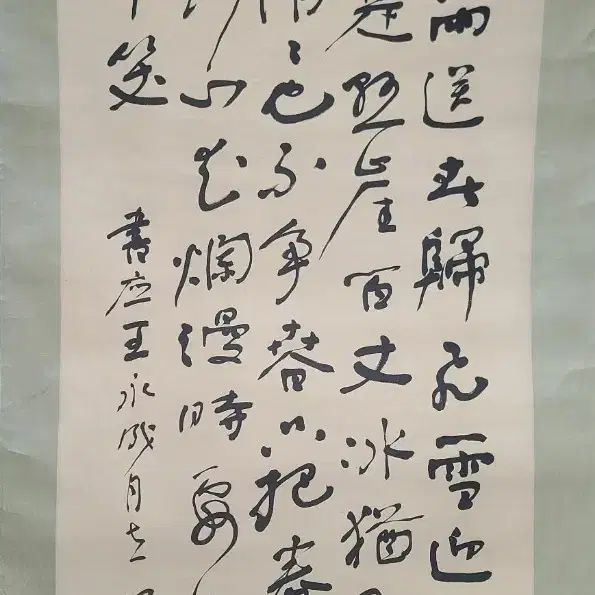 雨送春歸飛雪迎
是悬崖百丈冰猶
俏々也不争春只把春
到山花爛漫時
中笑
書应王永成